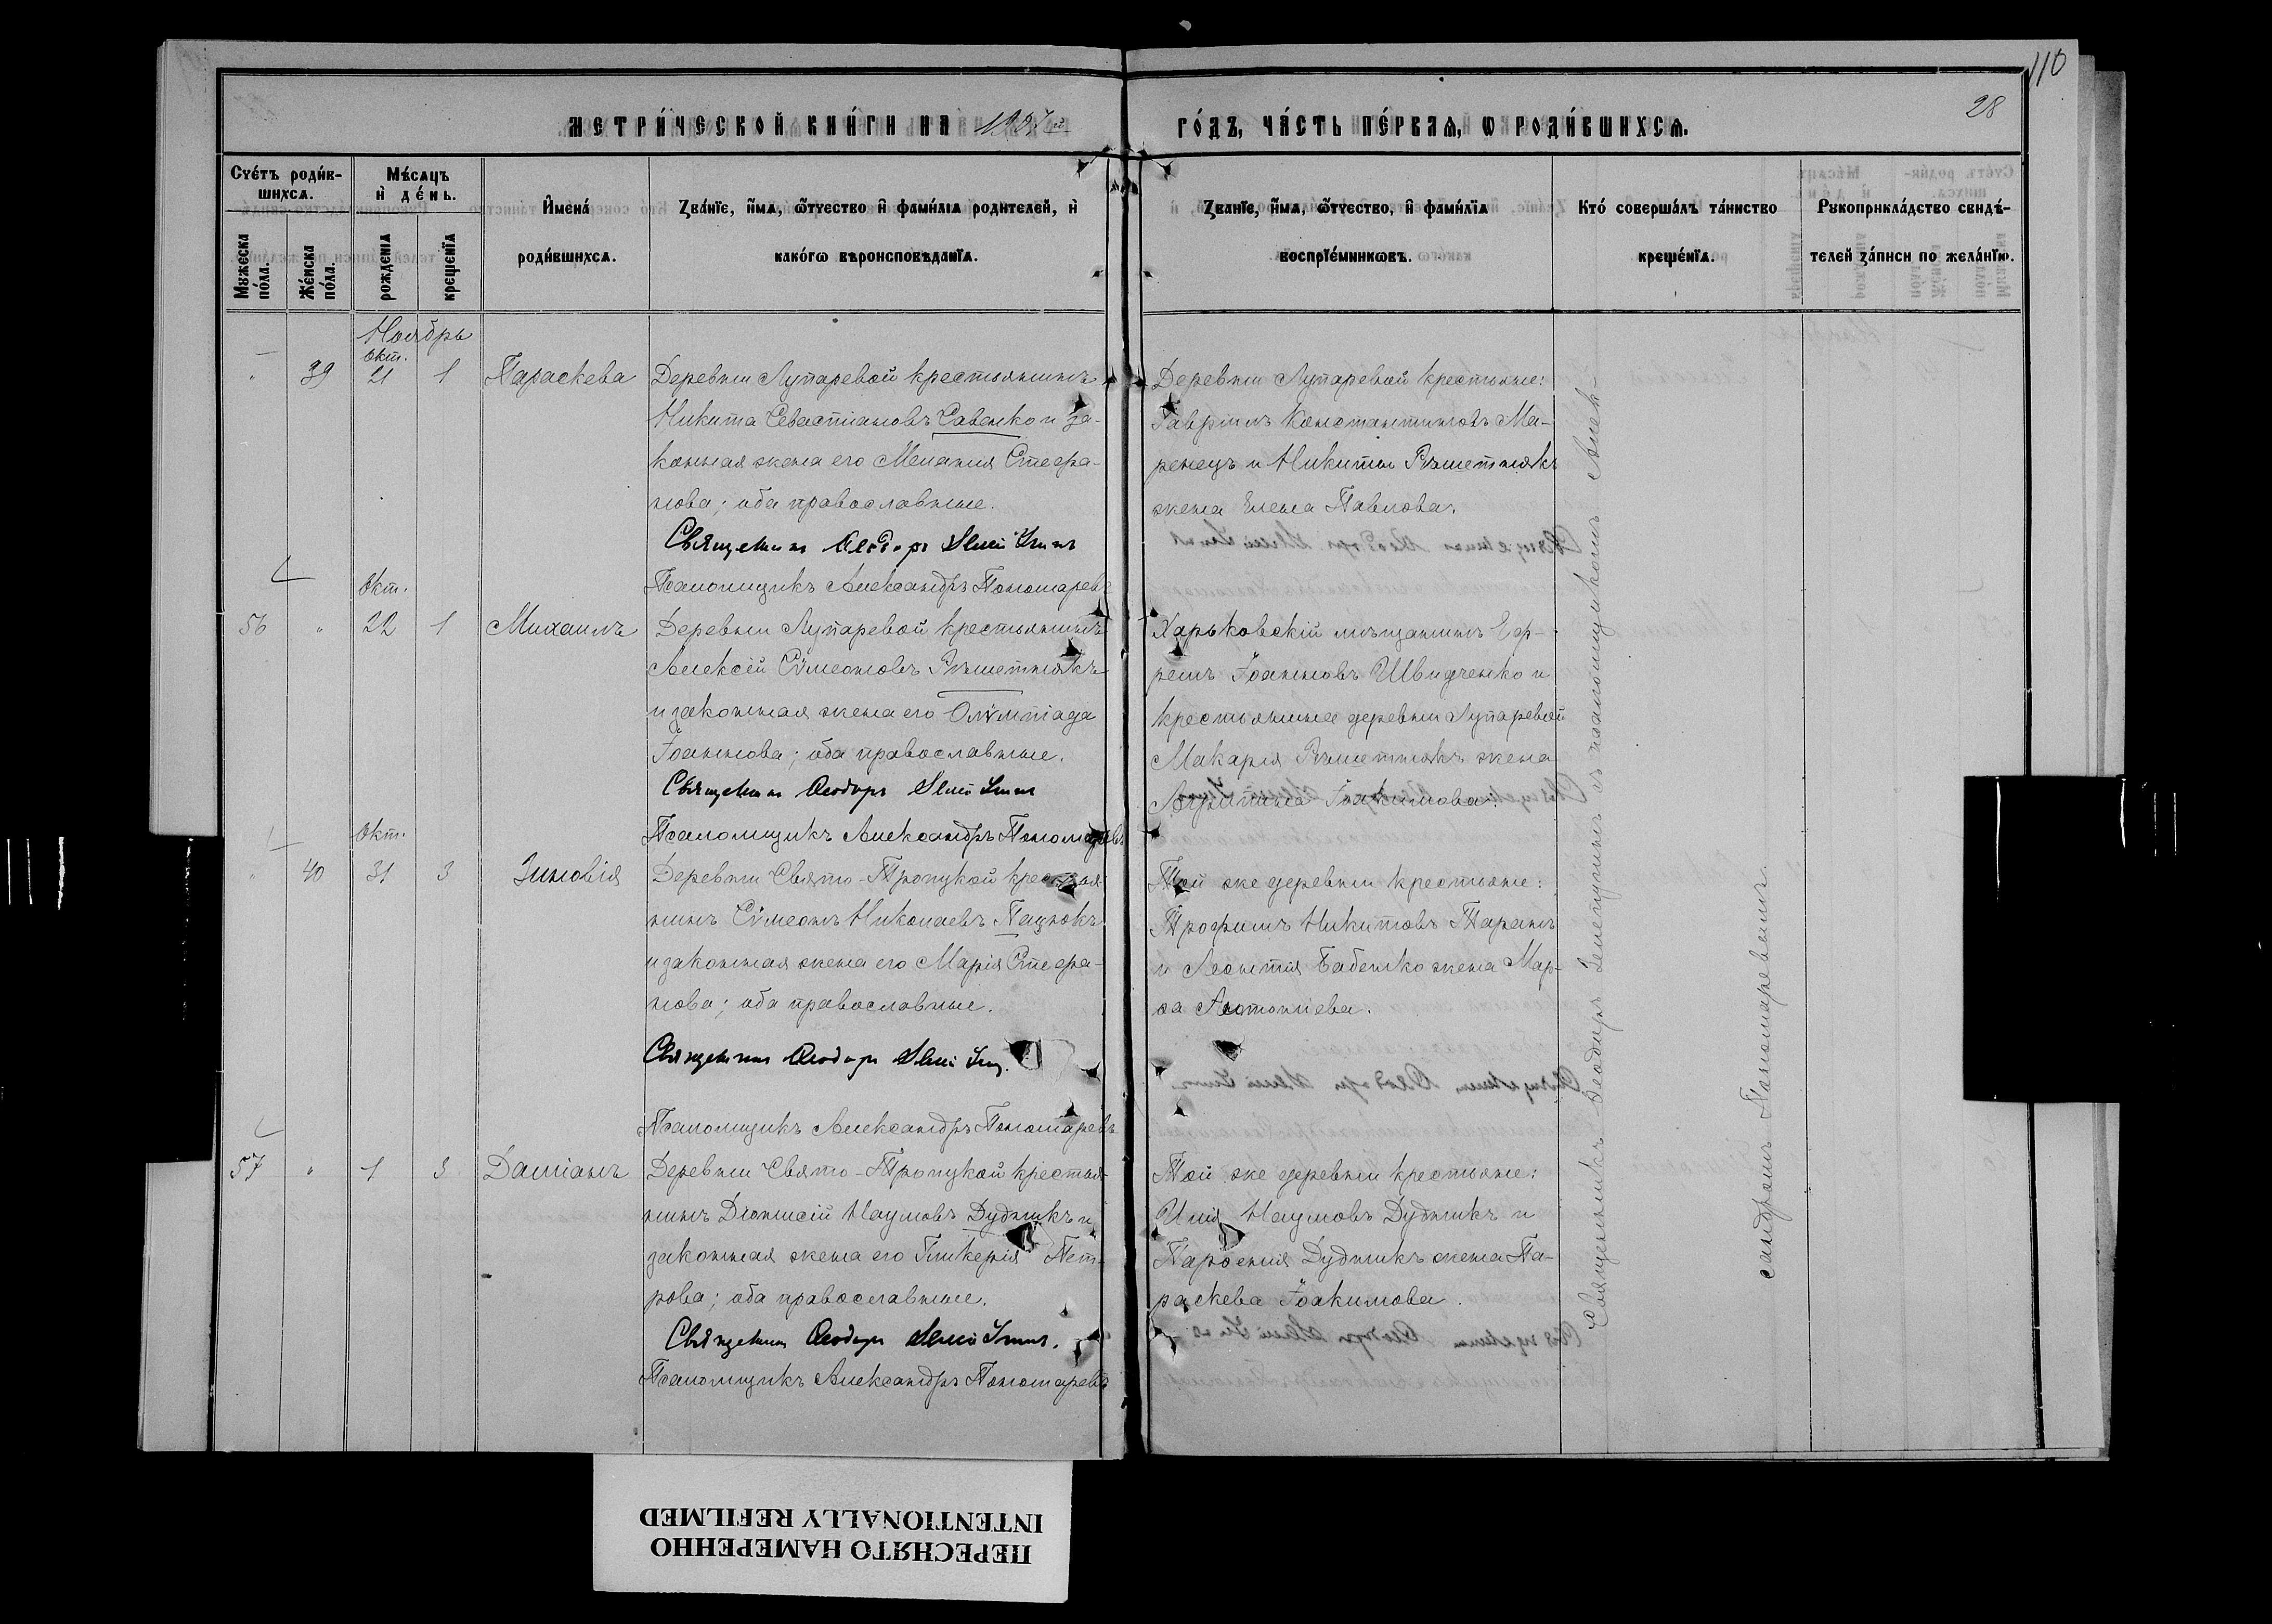 110
28
МЕТРИ́ЧЕСКОЙ КНИ́ГИ НА
ГО́ДЪ, ЧА́СТЬ ПЕ́РВАѦ, Ѡ РОДИ́ВШИХСѦ.
Сче́тъ роди́в-
шихсѧ.
Мѣ́сѧцъ
и҆ де́нь.
Мꙋжеска
по́ла.
Же́нска
по́ла.
рожденїѧ
крещенїѧ
И҆мена́
роди́вшихсѧ.
Зва́нїе, и҆́мѧ, ѻ҆́тчество и҆ фами́лїѧ роди́телей, и҆
како́гѡ вѣроисповѣ́данїѧ.
Зва́нїе, и҆́мѧ, ѻ҆́тчество, и҆ фами́лїѧ
воспрїе́мникѡвъ.
Кто́ соверша́лъ та́инство
креще́нїѧ.
Рꙋкоприкла́дство свидѣ́-
телей за́писи по жела́нїю.
Ноябрь
Окт.
" 39 21 1 Параскева
Деревни Лупаревой крестьянинъ
Никита Севастіановъ Савенко и за-
конная жена его Меланія Стефа-
нова; оба православные.
Священникъ Ѳеодоръ
Псаломщикъ Александръ Пономаревъ
Деревни Лупаревой крестьяне:
Гавріилъ Константиновъ Ма-
ренецъ и Никиты Рѣшетнякъ
жена Елена Павлова.
Окт.
56 " 22 1 Михаилъ
Деревни Лупаревой крестьянинъ
Алексій Сѵмеоновъ Рѣшетнякъ
и законная жена его Олѵмпіада
Іоаннова; оба православные.
Священникъ Ѳеодоръ
Псаломщикъ Александръ Пономаревъ
Харьковскій мѣщанинъ Еф-
ремъ Іоанновъ Швидченко и
крестьянина деревни Лупаревой
Макарія Рѣшетнякъ жена
Агрипина Іоакимова.
Окт.
" 40 31 3 Зиновія
Деревни Свято-Троицкой крестья-
нинъ Сѵмеонъ Николаевъ Пацюкъ
и законная жена его Марія Стефа-
нова; оба православные.
Священникъ Ѳеодоръ
Псаломщикъ Александръ Пономаревъ
Той же деревни крестьяне:
Трофимъ Никитовъ Таранъ
и Леонтія Бабенко жена Мар-
ѳа Антоніева.
57 " 1 3 Даміанъ
Деревни Свято-Троицкой крестья-
нинъ Діонисій Наумовъ Дудникъ и
законная жена его Гликерія Пет-
рова; оба православные.
Священникъ Ѳеодоръ
Псаломщикъ Александръ Пономаревъ
Той же деревни крестьяне:
Илія Наумовъ Дудникъ и
Парѳенія Дудникъ жена Па-
раскева Іоакимова.
Священникъ Ѳеодоръ съ псаломщикомъ Алек-
сандромъ Пономаревымъ.
ПЕРЕСНЯТО НАМЕРЕННО
INTENTIONALLY REFILMED